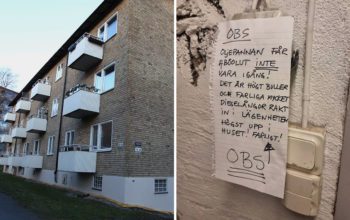 OBS
OLJEPANNAN FÅR
ABSOLUT INTE
VARA IGÅNG!
DET ÄR HÖGT BULLER
OCH FARLIGA MYCKET
DIESELÅNGOR RAKT
IN I LÄGENHETEN
HÖGST UPP I
HUSET! FARLIGT!
OBS